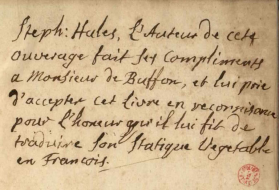 Steph: Hales, L'Auteur de cett
ouverage fait ses Compliments
a Monsieur de Buffon, et lui prie
d'accepter cet Livre en reconoisance
pour L'honeur qu'il lui fit de
traduire son Statique Vegetable
en Francois.